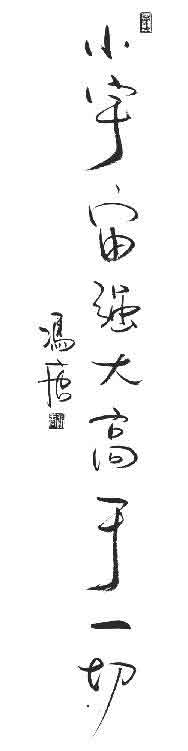 小宇宙强大高于一切
冯唐